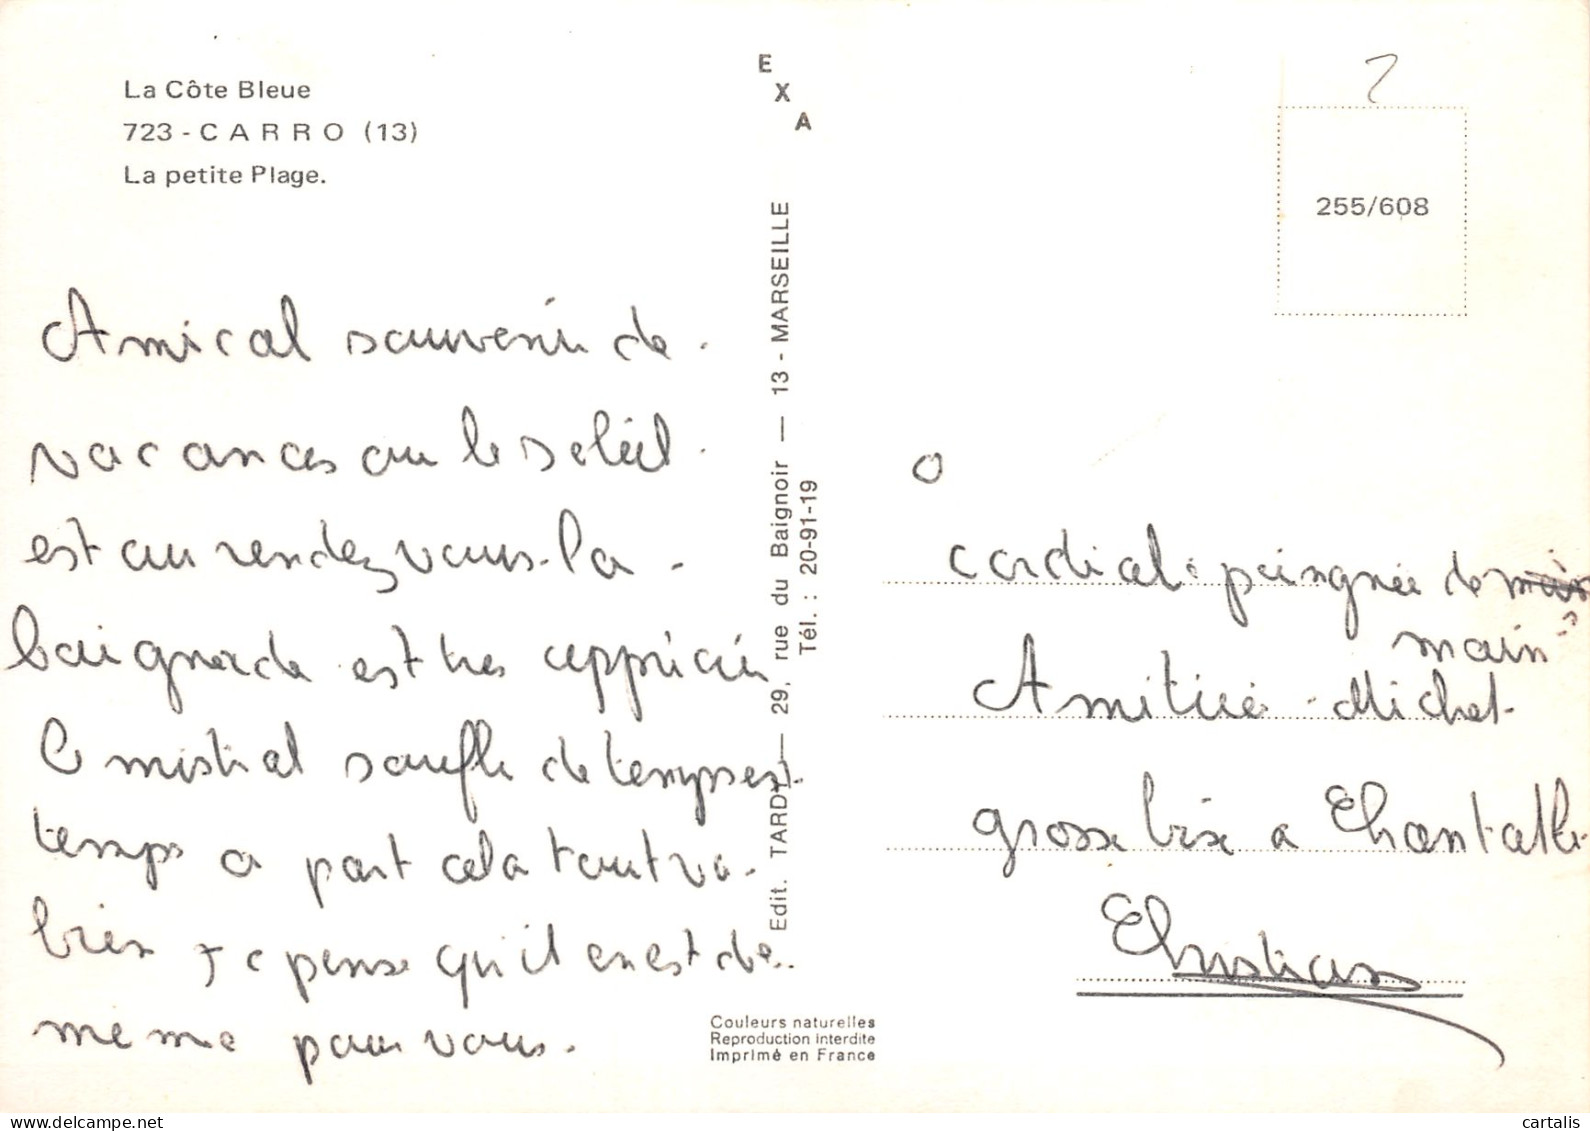 La Côte Bleue
723 - CARRO (13)
La petite Plage.
Amical souvenir de
vacances ou le soleil
est au rendez vous. la
baignade est tres appréciée
le mistral souffle de temps en
temps a part cela tout va
bien je pense qu'il en est de
meme pour vous.
EXA
Edit. TARDY — 29, rue du Baignoir — 13 - MARSEILLE
Tél. : 20-91-19
Couleurs naturelles
Reproduction interdite
Imprimé en France
255/608
cordiale poingnée de main
main
Amitiée Michel
grosse bise a Chantalle
Christian
cartalis